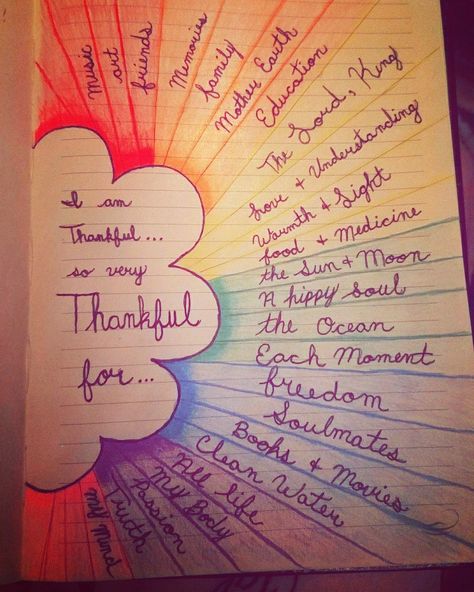 I am
Thankful...
so very
Thankful
for...
music
art
friends
Memories
family
Mother Earth
Education
The Lord, King
Love & Understanding
Warmth & Light
food & Medicine
the Sun & Moon
A hippy Soul
the Ocean
Each Moment
freedom
Soulmates
Books & Movies
Clean Water
All life
My Body
Passion
Truth
my Mind